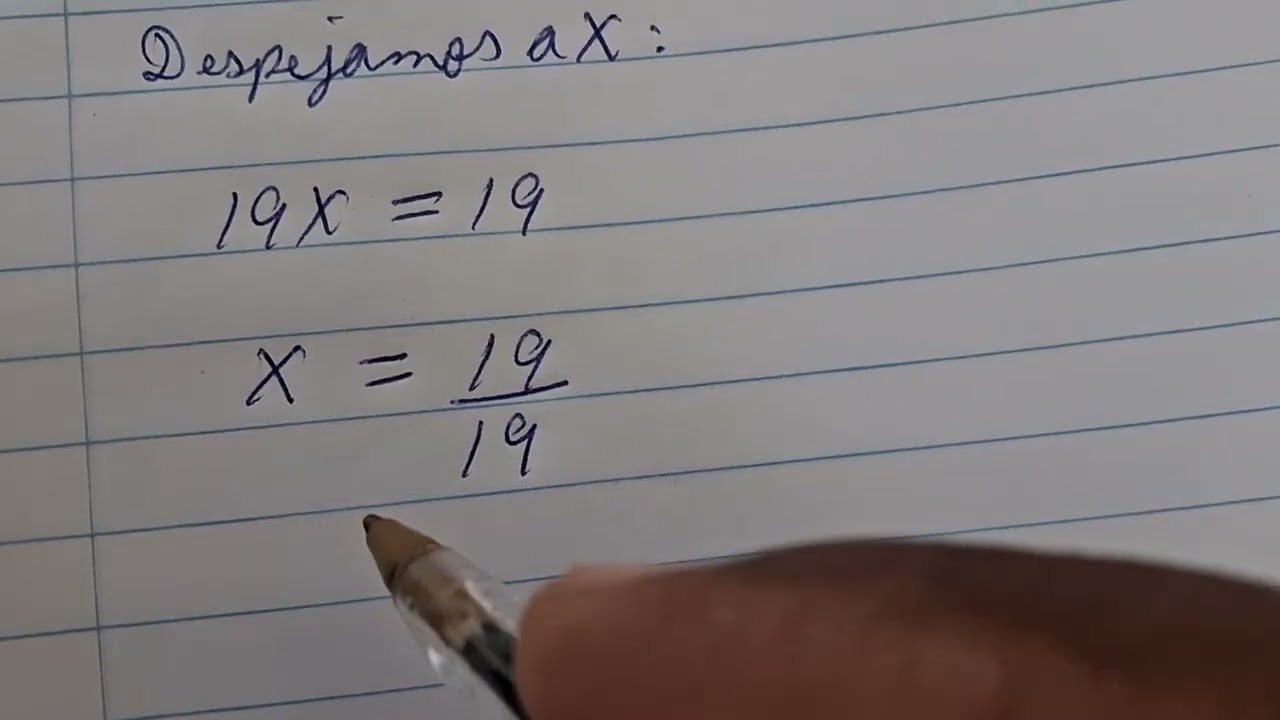 Despejamos a X:
19X = 19
X = 19/19